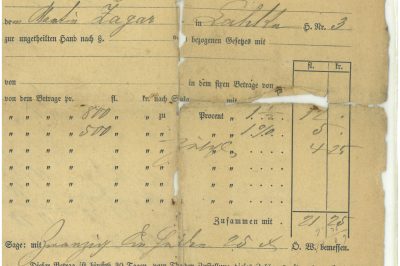 dem Martin Zagar in Lahka H. Nr. 3
zur ungetheilten Hand nach §. bezogenen Gesetzes mit
fl. kr.
von in dem fixen Betrage von
von dem Betrage pr. 800 fl. kr. nach Scala mit
„ „ „ „ 800 „ „ zu Procent 1 1/2 % 12
„ „ „ „ 500 „ „ „ 1 % 5
„ „ „ „ „ „ „ 4 25
„ „ „ „ „ „ „ „
„ „ „ „ „ „ „ „
„ „ „ „ „ „ „ „
Zusammen mit 21 25
Sage: mit Zwanzig Ein Gulden 25 kr Ö. W. bemessen.
Dieser Betrag ist binnen 30 Tagen, vom